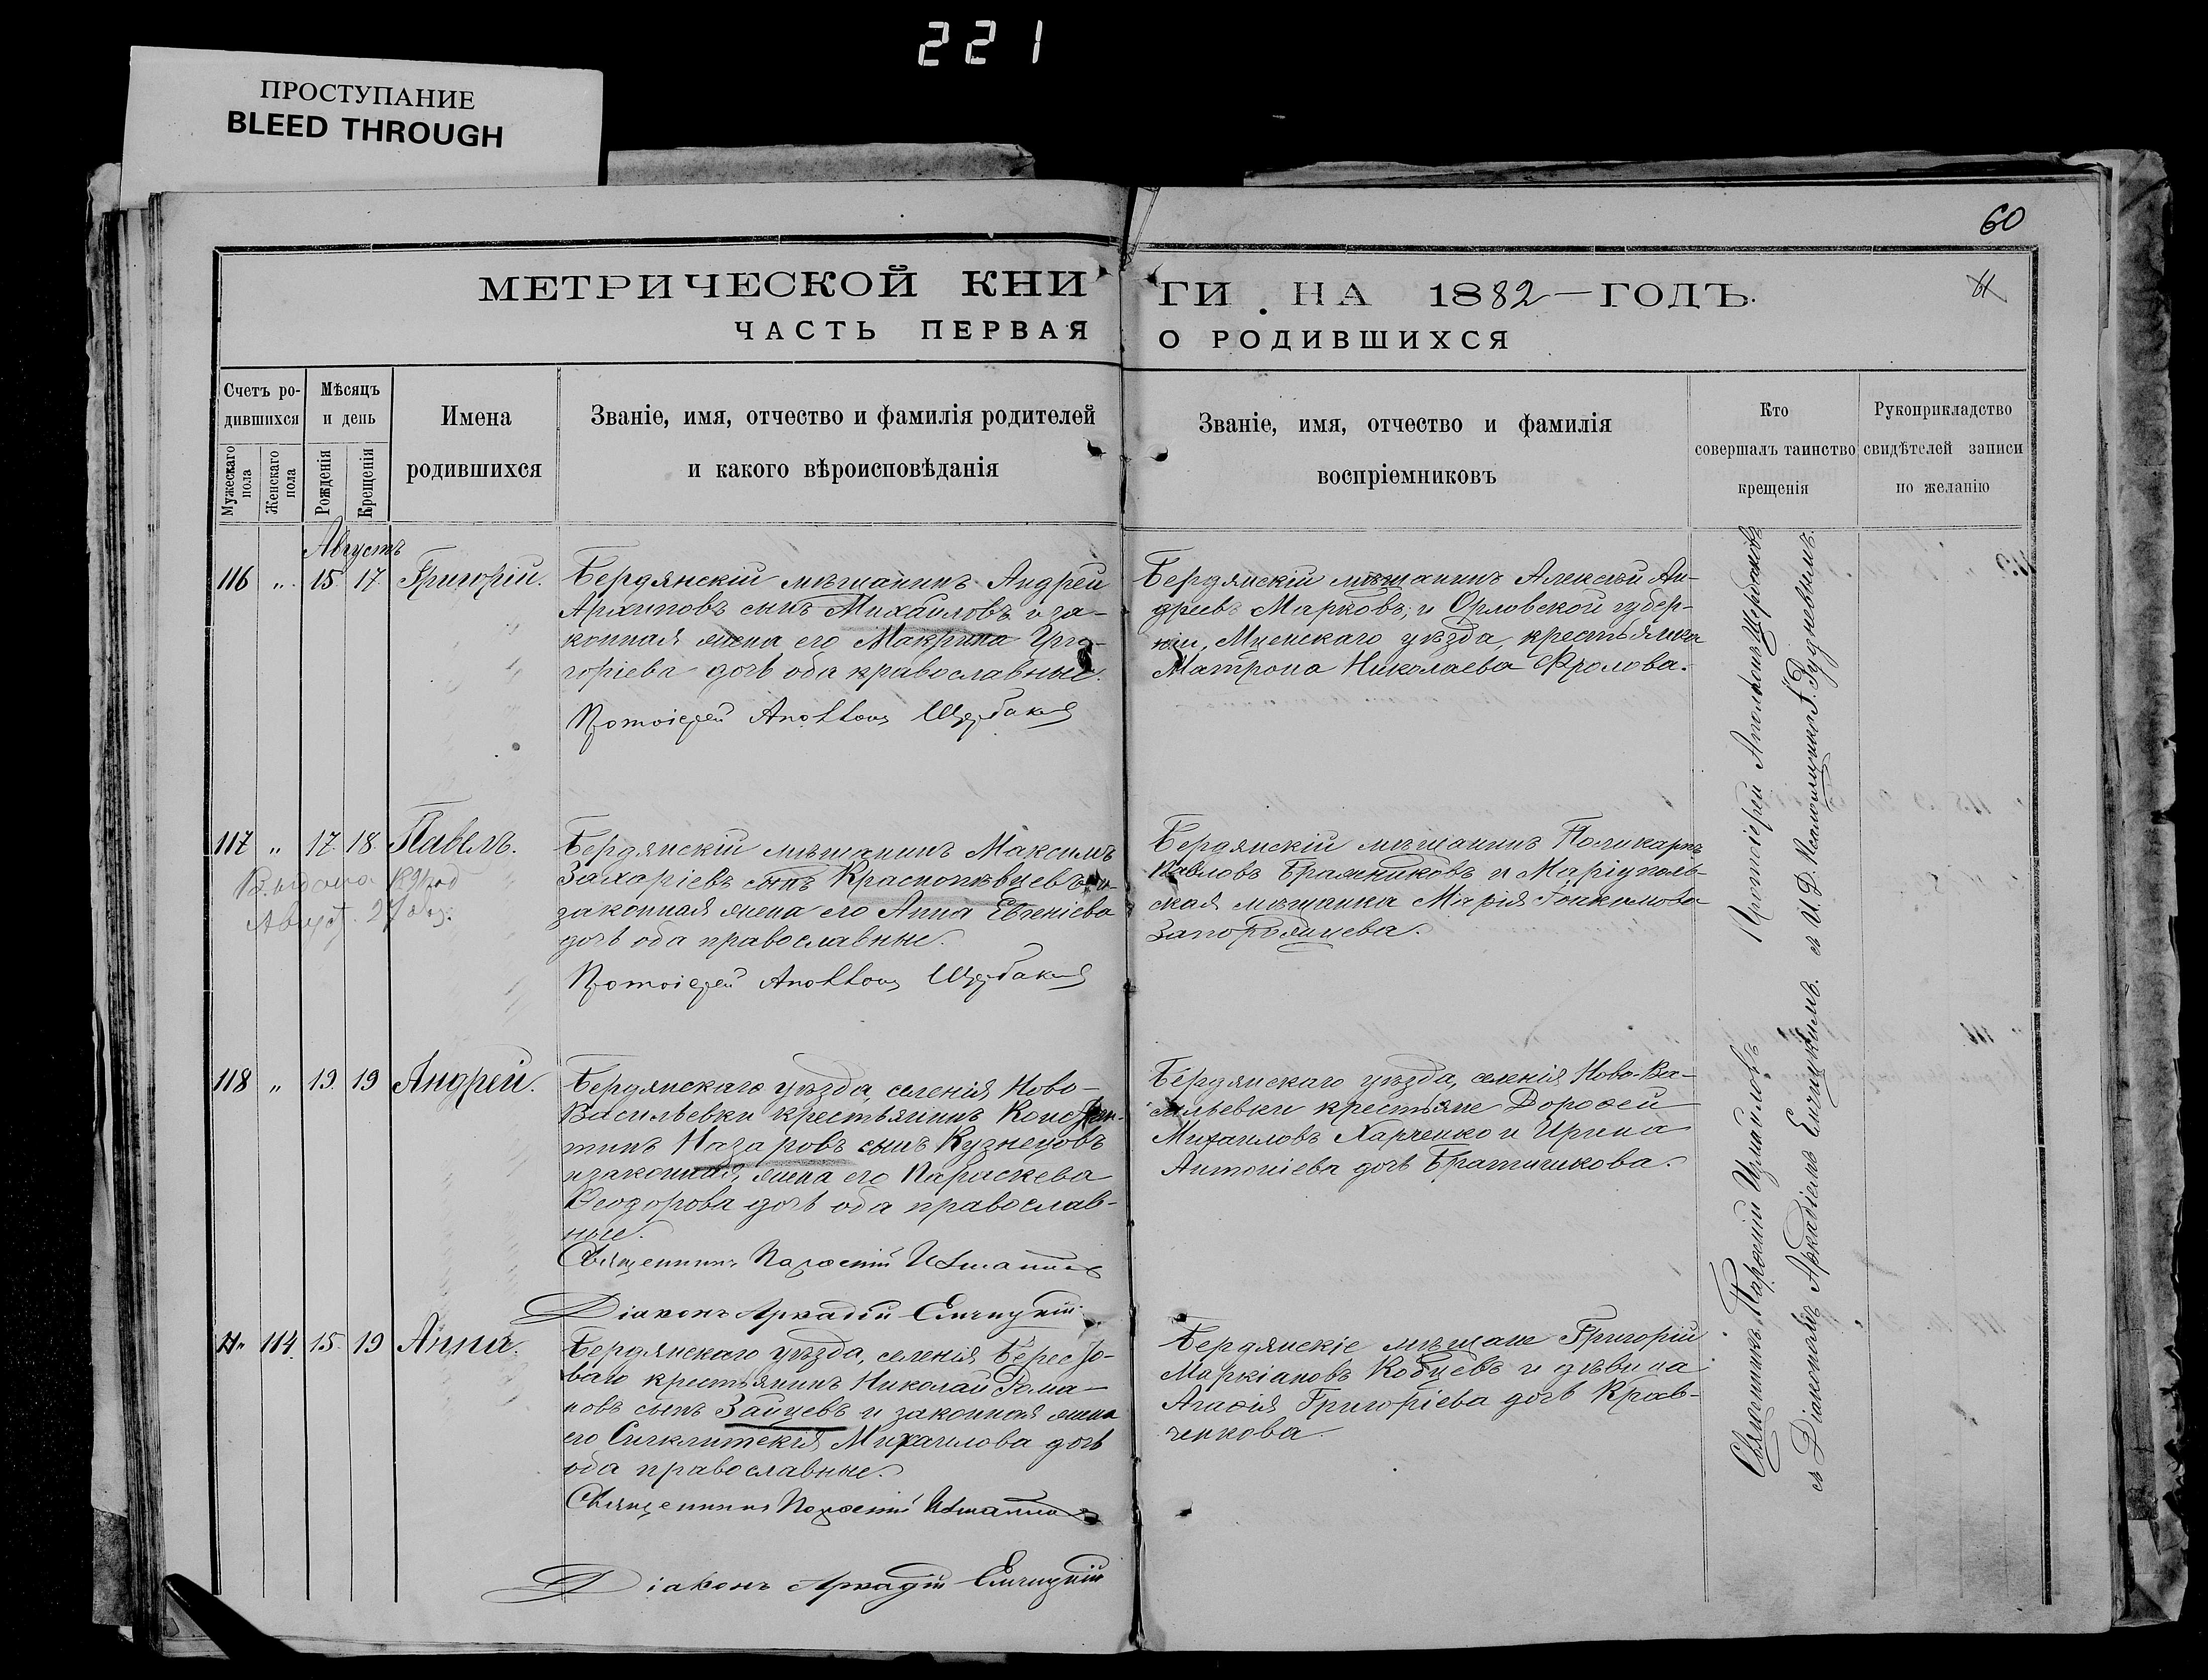 221
ПРОСТУПАНИЕ
BLEED THROUGH
60
МЕТРИЧЕСКОЙ КНИГИ НА 1882 ГОДЪ.
61
ЧАСТЬ ПЕРВАЯ О РОДИВШИХСЯ
Счетъ родившихся
Мужескаго пола
Женскаго пола
Мѣсяцъ и день
Рожденія
Крещенія
Имена
родившихся
Званіе, имя, отчество и фамилія родителей
и какого вѣроисповѣданія
Званіе, имя, отчество и фамилія
воспріемниковъ
Кто
совершалъ таинство
крещенія
Рукоприкладство
свидѣтелей записи
по желанію
Августъ
116 „ 15. 17. Григорій.
Бердянскій мѣщанинъ Андрей
Архиповъ сынъ Михайловъ и за-
конная жена его Макрина Гри-
горіева дочь оба православные.
Протоіерей Аполлонъ Щербаковъ
Бердянскій мѣщанинъ Алексѣй Ан-
дреевъ Марковъ, и Орловской губер-
ніи, Мценскаго уѣзда, крестьянка
Матрона Николаева Фролова.
117 „ 17. 18. Павелъ.
Августа 27
Бердянскій мѣщанинъ Максимъ
Захаріевъ сынъ Краснопѣвцевъ и
законная жена его Анна Евгеніева
дочь оба православные.
Протоіерей Аполлонъ Щербаковъ
Бердянскій мѣщанинъ Поликарпъ
Павловъ Бражниковъ и Маріуполь-
ская мѣщанка Марія Іоакимова
Протоіерей Аполлонъ Щербаковъ
съ И. Д. Псаломщика Г. Рудневымъ.
118 „ 19. 19 Андрей.
Бердянскаго уѣзда, селенія Ново-
Васильевки крестьянинъ Констан-
тинъ Назаровъ сынъ Кузнецовъ
и законная жена его Параскева
Ѳеодорова дочь оба православ-
ные.
Священникъ Парѳеній Измаиловъ
Діаконъ Аркадій Енчицкій
Бердянскаго уѣзда, селенія Ново-Ва-
сильевки крестьяне Дороѳей
Михаиловъ Харченко и Ирина
Антоніева дочь Братчикова.
„ 114. 15. 19 Анна.
Бердянскаго уѣзда, селенія Бересто-
ваго крестьянинъ Николай Рома-
новъ сынъ Зайцевъ и законная жена
его Синклитикія Михаилова дочь
оба православные.
Священникъ Парѳеній Измаиловъ
Діаконъ Аркадій Енчицкій
Бердянскіе мѣщане Григорій
Маркіановъ Кобцевъ и дѣвица
Агафія Григоріева дочь Крав-
ченкова.
Священникъ Парѳеній Измаиловъ
съ Діакономъ Аркадіемъ Енчицкимъ.